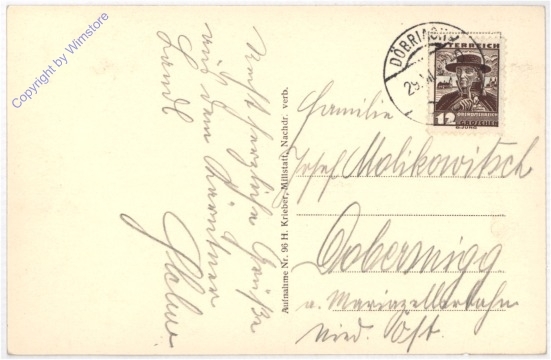 Copyright by Wimstore
Recht herzliche Grüße
aus dem Kärntner
Land
Aufnahme Nr. 96 H. Krieber, Millstatt, Nachdr. verb.
DÖBRIACH
29.
ÖSTERREICH
12 GROSCHEN
Familie
Josef Molikowitsch
Dobermigg
a. Mariazellerbahn
Nied. Öst.